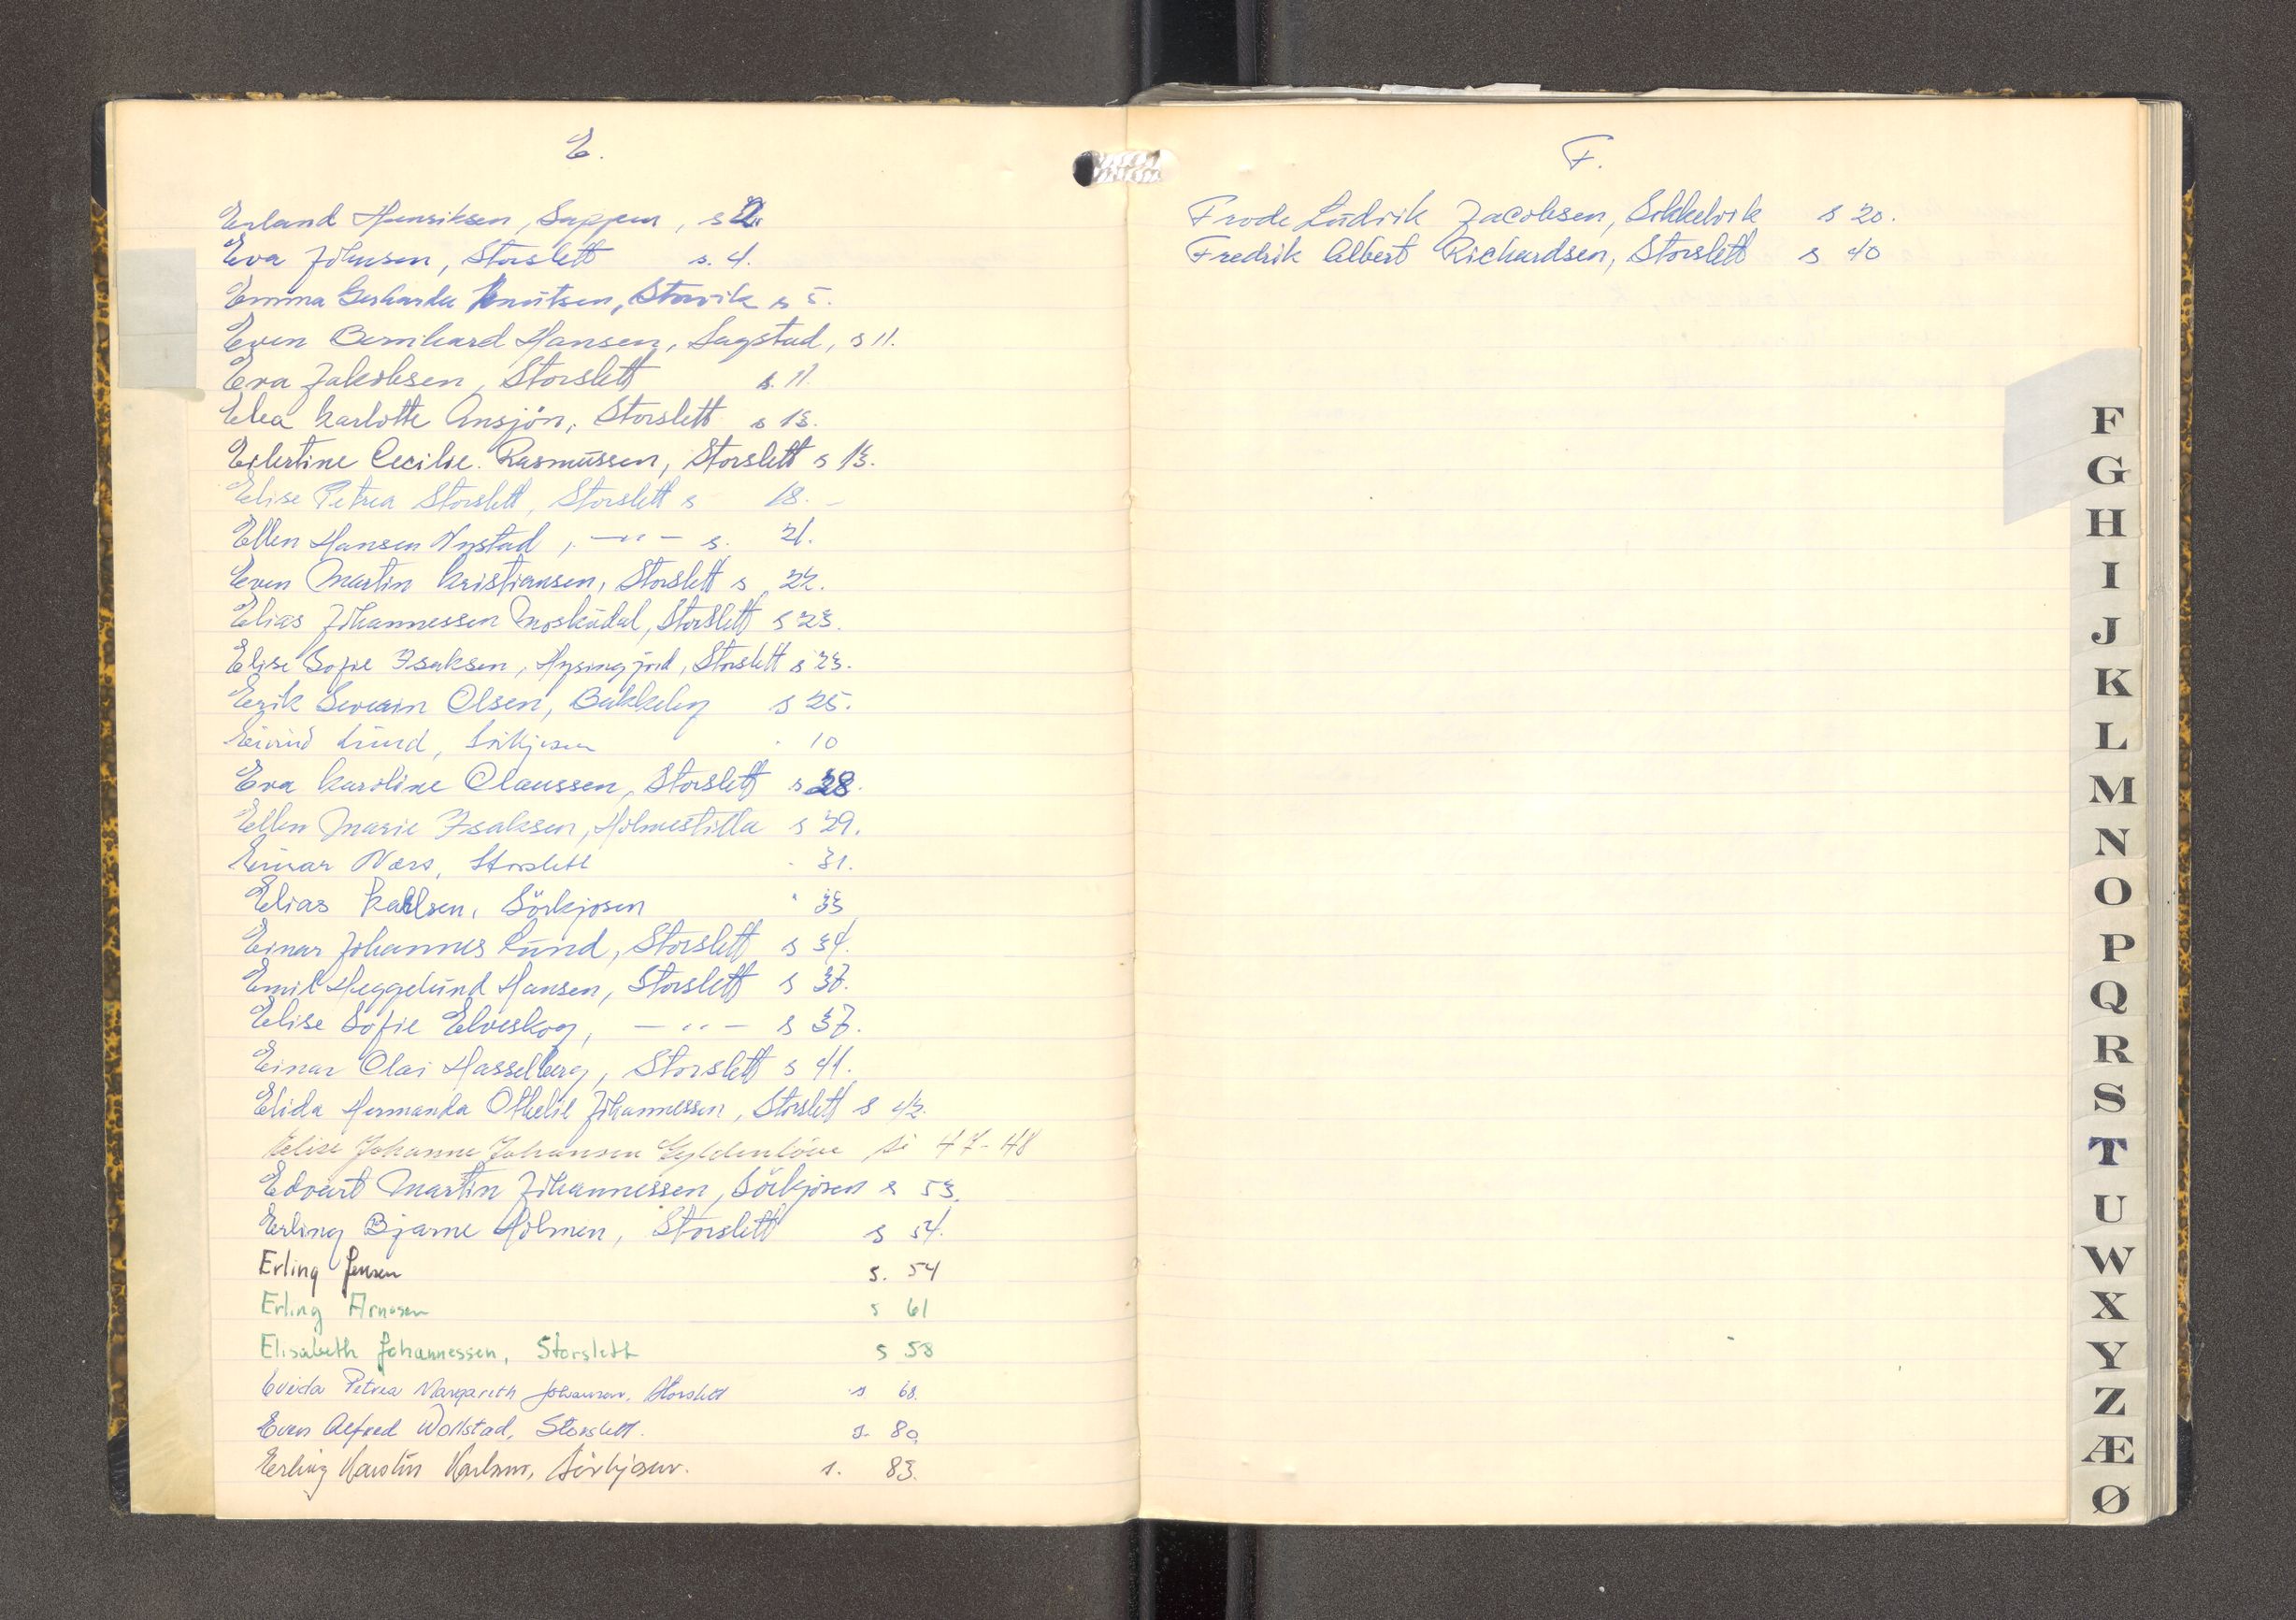 E.
Erland Henriksen, Sappen, s 2.
Eva Johnsen, Storslett s. 4.
Emma Gerharda Knutsen, Storvik s 5.
Even Bernhard Hansen, Sagstad, s 11.
Eva Jakobsen, Storslett s. 11.
Elea Karlotte Ansjön, Storslett s 13.
Eilertine Cecilie. Rasmussen, Storslett s 13.
Elise Petrea Storslett, Storslett s 18. -
Ellen Hansen Nystad, -"- s. 21.
Even Martin Kristiansen, Storslett s 22.
Elias Johannessen Moskudal, Storslett s 23.
Elise Sofie Isaksen, Hysingjord, Storslett s 23.
Erik Severin Olsen, Bakkeby s 25.
Eivind Lund, Sörkjosen 10
Eva Karoline Claussen, Storslett s 28.
Ellen Marie Isaksen, Holmestilla s 29.
Einar Nærs, Storslett - 31.
Elias Karlsen, Sörkjosen " 33
Einar Johannes Lund, Storslett s 34.
Emil Heggelund Hansen, Storslett s 37.
Elise Sofie Elveskog, -"- s 37.
Einar Olai Hasselberg, Storslett s 41.
Elida Hermanda Othelie Johannessen, Storslett s 42.
Elise Johanne Johansen Gyldenlöve si 47-48
Edvart Martin Johannessen, Sörkjosen s 53.
Erling Bjarne Holmen, Storslett s 54.
Erling Jensen s. 54
Erling Arnesen s 61
Elisabeth Johannessen, Storslett s 58
Petrea Margareth Johansen. Storslett s 68.
Even Alfred Wollstad, Storslett. s. 80.
Erling Karlsen, Sörkjosen. s. 83.
F.
Frode Ludvik Jacobsen, Sikkelvik s 20.
Fredrik Albert Richardsen, Storslett s 40
F
G
H
I
J
K
L
M
N
O
P
Q
R
S
T
U
W
X
Y
Z
Æ
Ø